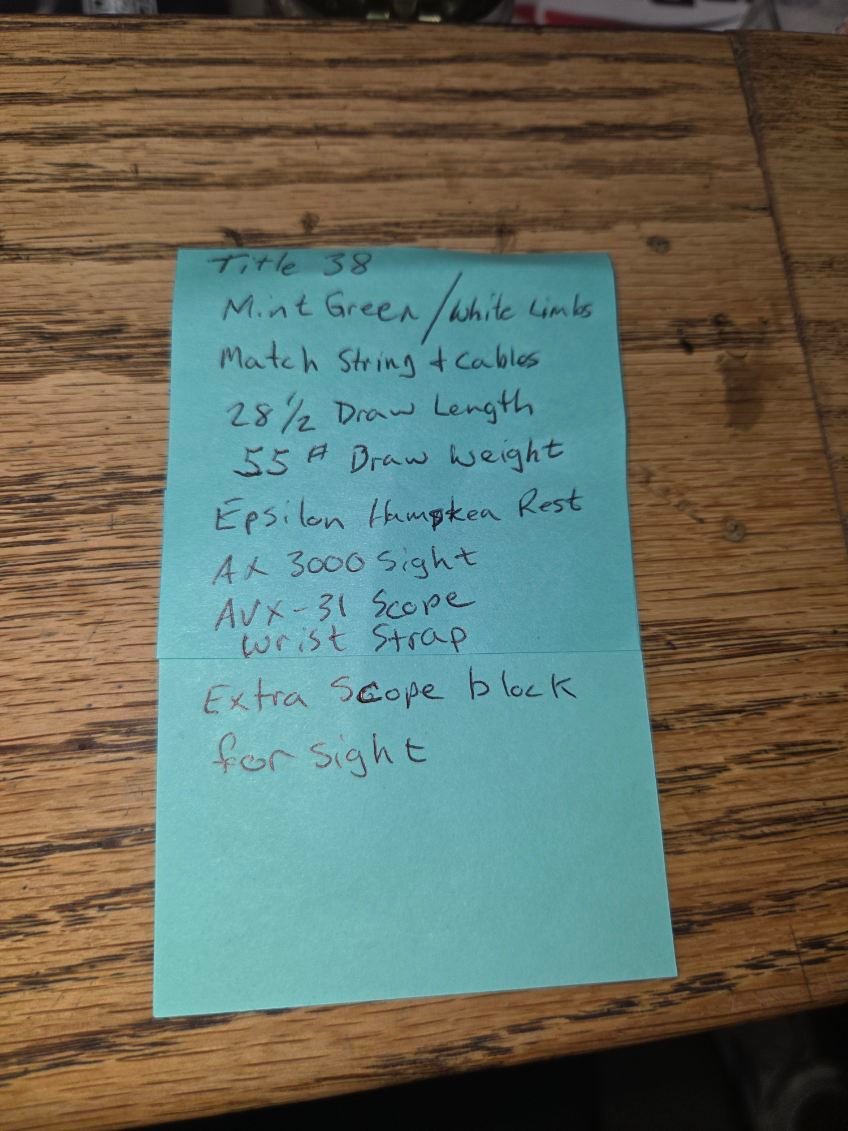 Title 38
Mint Green / White Limbs
Match String + Cables
28 1/2 Draw Length
55 # Draw Weight
Epsilon Rest
AX 3000 Sight
AVX-31 Scope
Wrist Strap
Extra Scope block
for sight